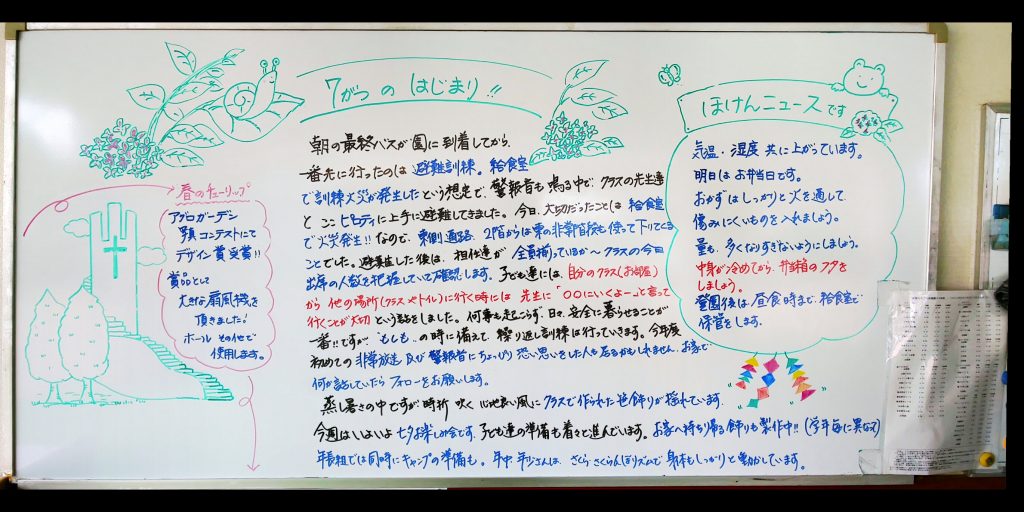 7がつ の はじまり!!
朝の最終バスが園に到着してから
一番先に行ったのは 避難訓練。給食室
で訓練火災が発生したという想定で、警報音も鳴る中で、クラスの先生達
と ここ ピロティに上手に避難してきました。今日、大切だったことは 給食室
で火災発生!! なので、東側通路、2階からは東の非常階段も使って下りてくる
ことでした。避難した後は、担任達が 全員揃っているか〜クラスの今日
出席の人数を把握していて確認します。子ども達には、自分のクラス(お部屋)
から 他の場所(クラスやトイレ)に行く時には 先生に「〇〇にいくよー」と言って
行くことが大切 という話をしました。何事も起こらず、日々、安全に暮らせることが
一番!!ですが "もしも"の時に備えて、繰り返し訓練は行っていきます。今年度
初めての 非常放送 及び 警報音に ちょっぴり 恐い思いをした人も居るかもしれません。お家で
何か話していたら フォローをお願いします。
蒸し暑さの中ですが 時折 吹く 心地良い風に クラスで作られた 笹飾りが 揺れています。
今週は いよいよ 七夕お楽しみ会です。子ども達の準備も着々と進んでいます。お家へ持ち帰る飾りも製作中!!(学年毎に異なる)
年長組では 同時に キャンプの準備も。年中、年少さんは、さくら さくらんぼリズムで 身体もしっかりと動かしています。
春のチューリップ
アグロガーデン
写真コンテストにて
デザイン賞受賞!!
賞品として
大きな扇風機を
頂きました!
ホール その他で
使用します。
ほけんニュースです
気温・湿度 共に上がっています。
明日は お弁当日です。
おかず は しっかりと火を通して、
傷みにくいものを入れましょう。
量も、多くなりすぎないようにしましょう。
中身が冷めてから、弁当箱のフタを
しましょう。
登園後は 昼食時まで、給食室で
保管をします。